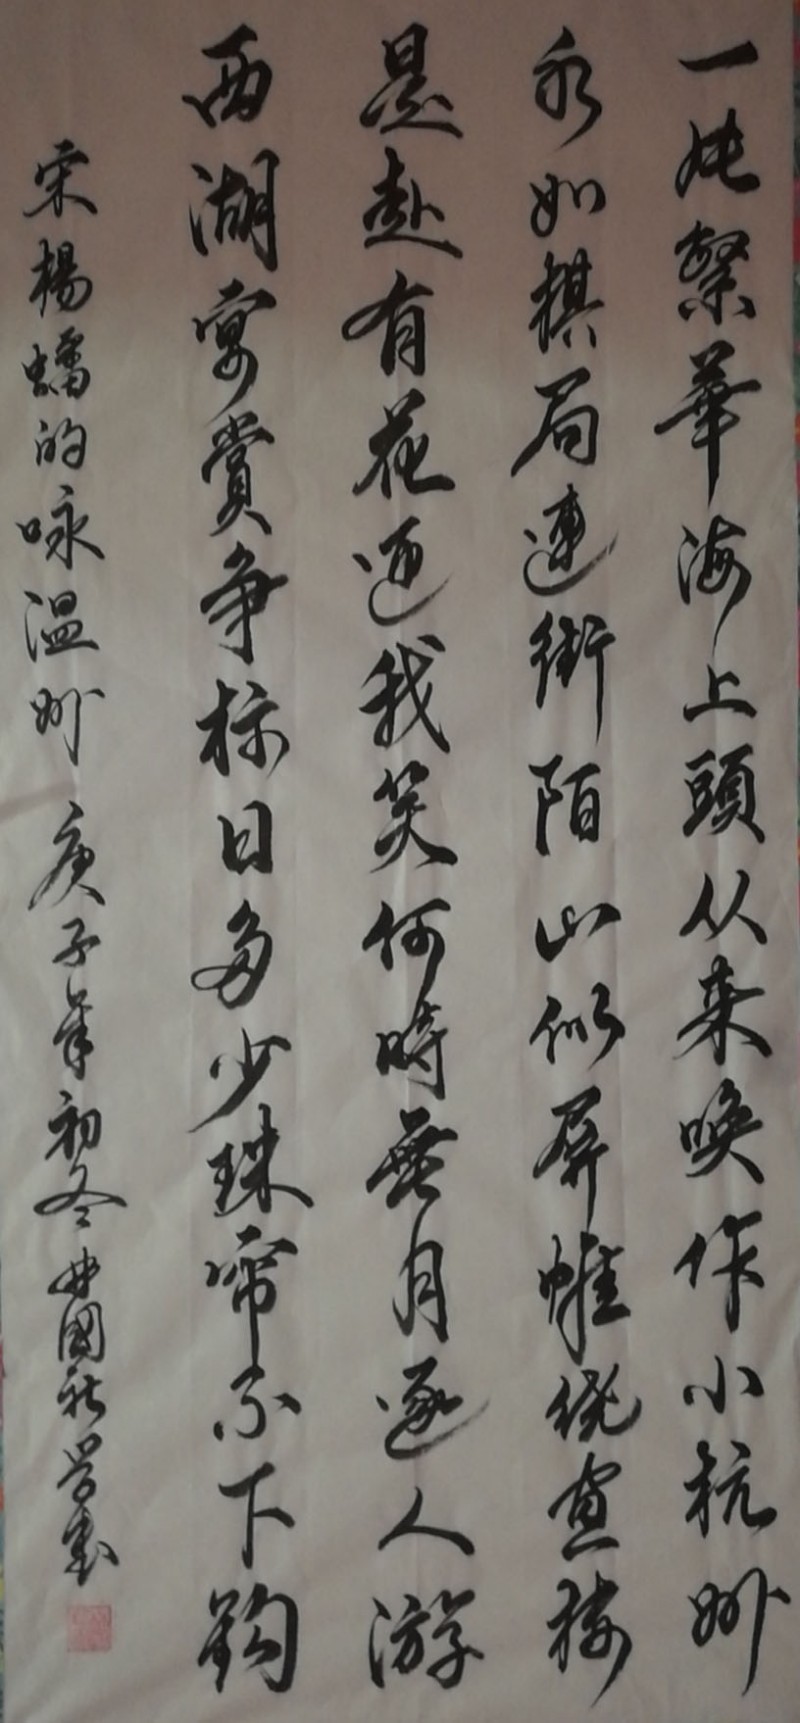 一繁華海上頭从来喚作小杭州
水如棋局連街陌山似屏帷繞畫樓
是赴有花迎我笑何時無月逐人游
西湖宴賞争标日多少珠帘不下鈎
宋楊蟠的咏温州 庚子年初冬 國新学書